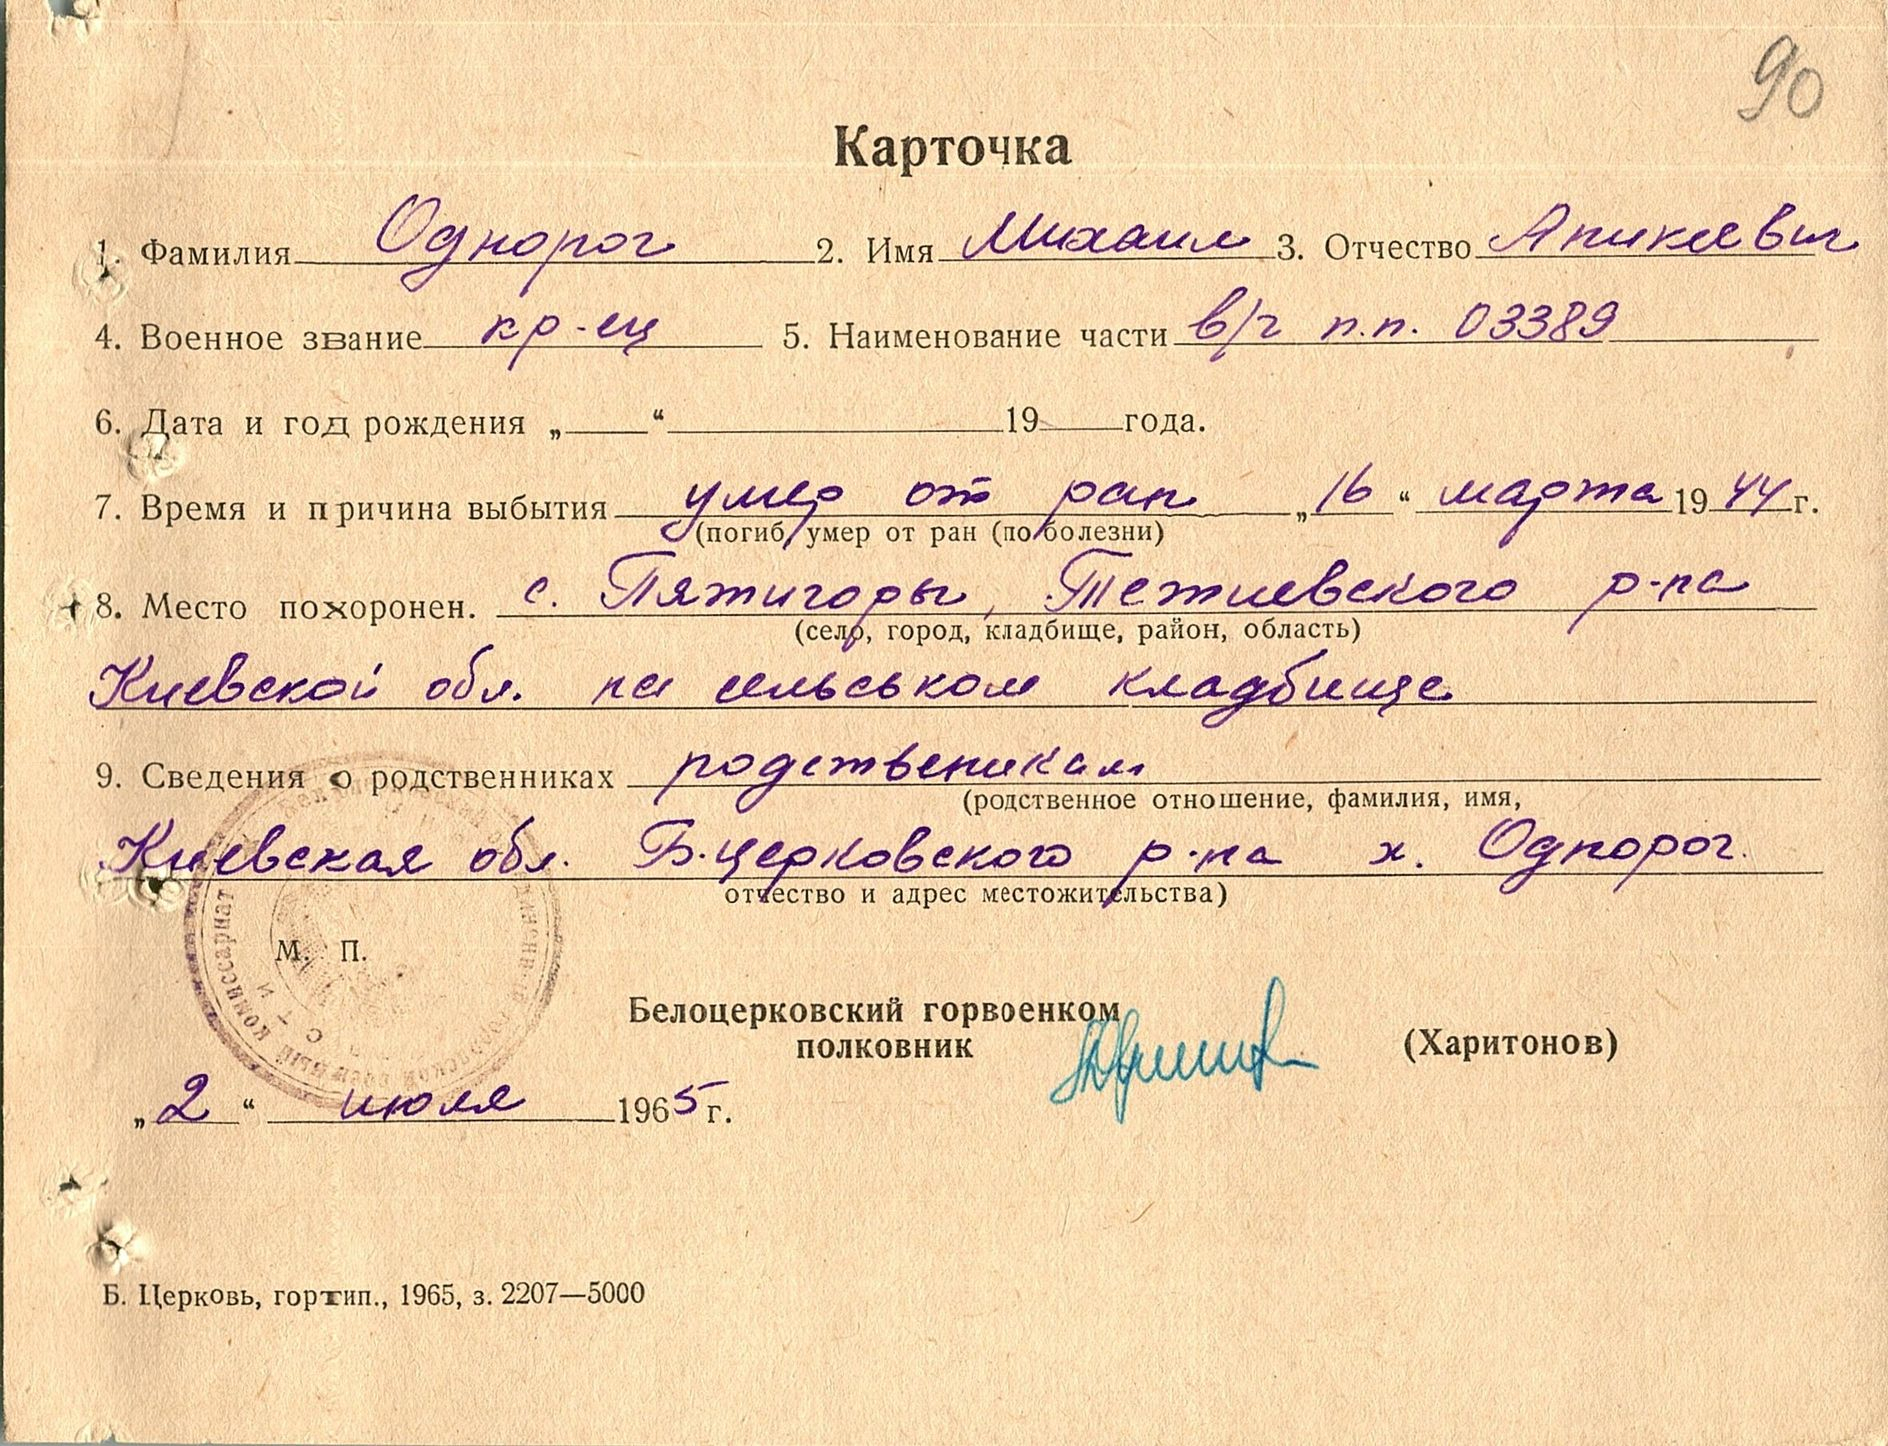 90
Карточка
1. Фамилия Однорог 2. Имя Михаил 3. Отчество Аникеевич
4. Военное звание кр-ец 5. Наименование части в/ч п.п. 03389
6. Дата и год рождения „ “ 19 года.
7. Время и причина выбытия умер от ран „16“ марта 1944 г.
(погиб, умер от ран (по болезни)
8. Место похоронен. с. Пятигоры, Тетиевского р-на
(село, город, кладбище, район, область)
Киевской обл. на сельськом кладбище
9. Сведения о родственниках родственикам
(родственное отношение, фамилия, имя,
Киевская обл. Б.церковского р-на х. Однорог.
отчество и адрес местожительства)
М. П.
городской военный комиссариат
Белоцерковский горвоенком
полковник (Харитонов)
„2“ июля 1965 г.
Б. Церковь, гортип., 1965, з. 2207—5000